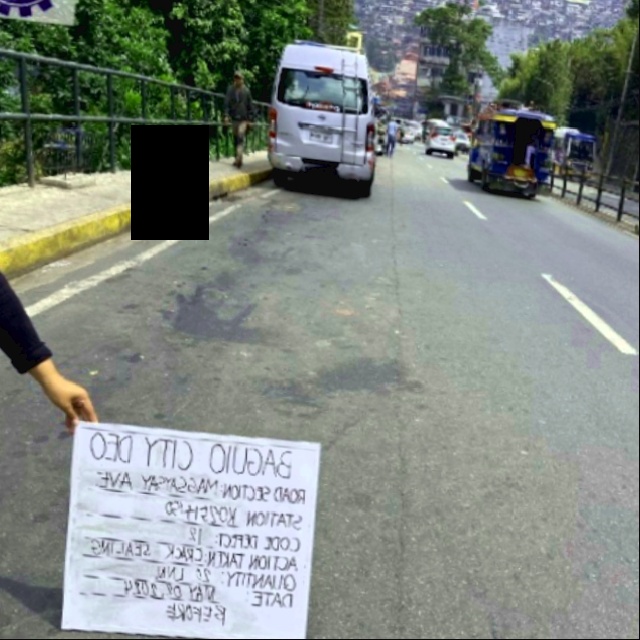 BAGUIO CITY DEO
ROAD SECTION: MAGSAYSAY AVE
STATION
CODE DEFECT: 12
ACTION TAKEN: CRACK SEALING
QUANTITY: 22 L.M
DATE: MAY 07, 2024
BEFORE